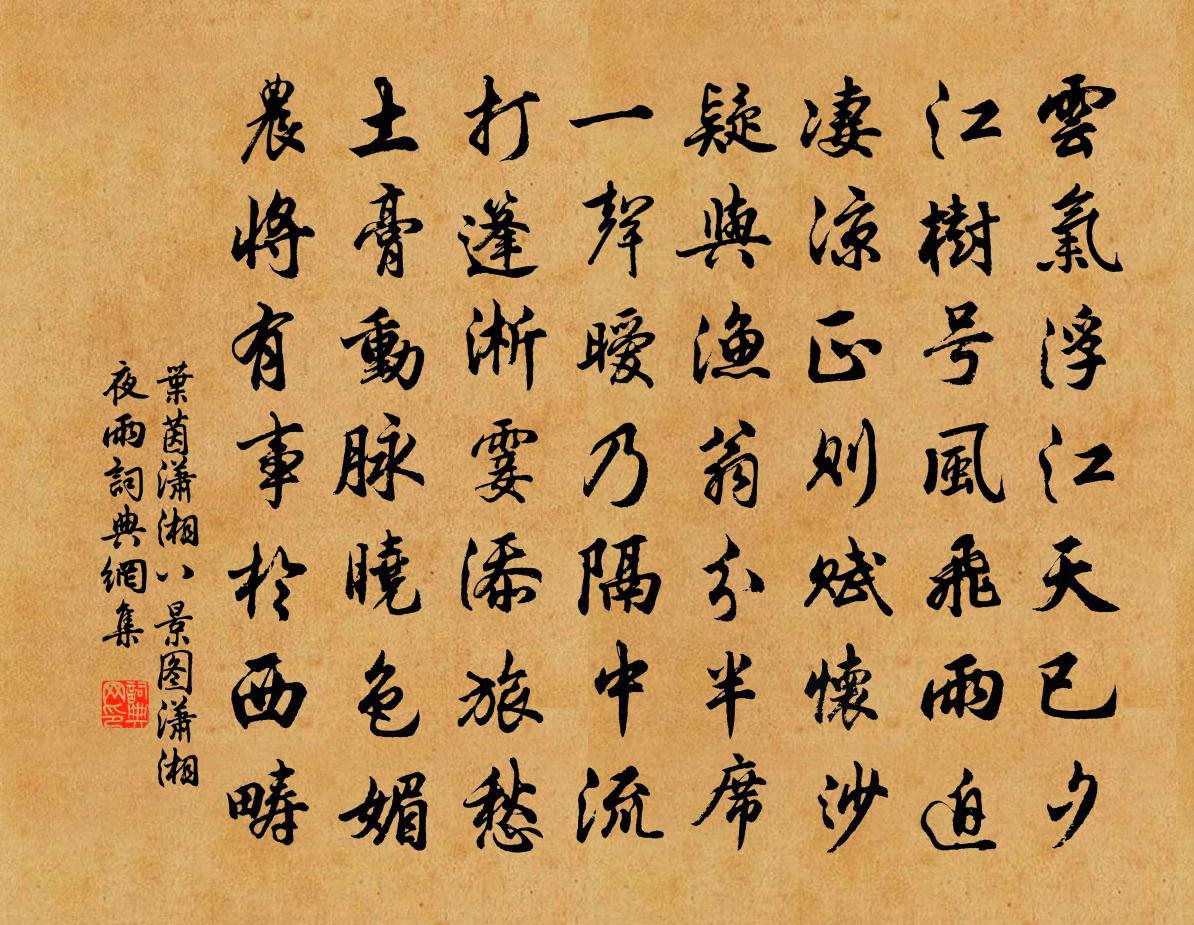 雲氣浮江天已夕
江樹号風飛雨迫
凄涼正則賦懷沙
疑與漁翁分半席
一聲曖乃隔中流
打篷淅霎添旅愁
土膏動脉曉色媚
農將有事於西疇
葉茵瀟湘八景图瀟湘
夜雨詞典網集
詞典网印